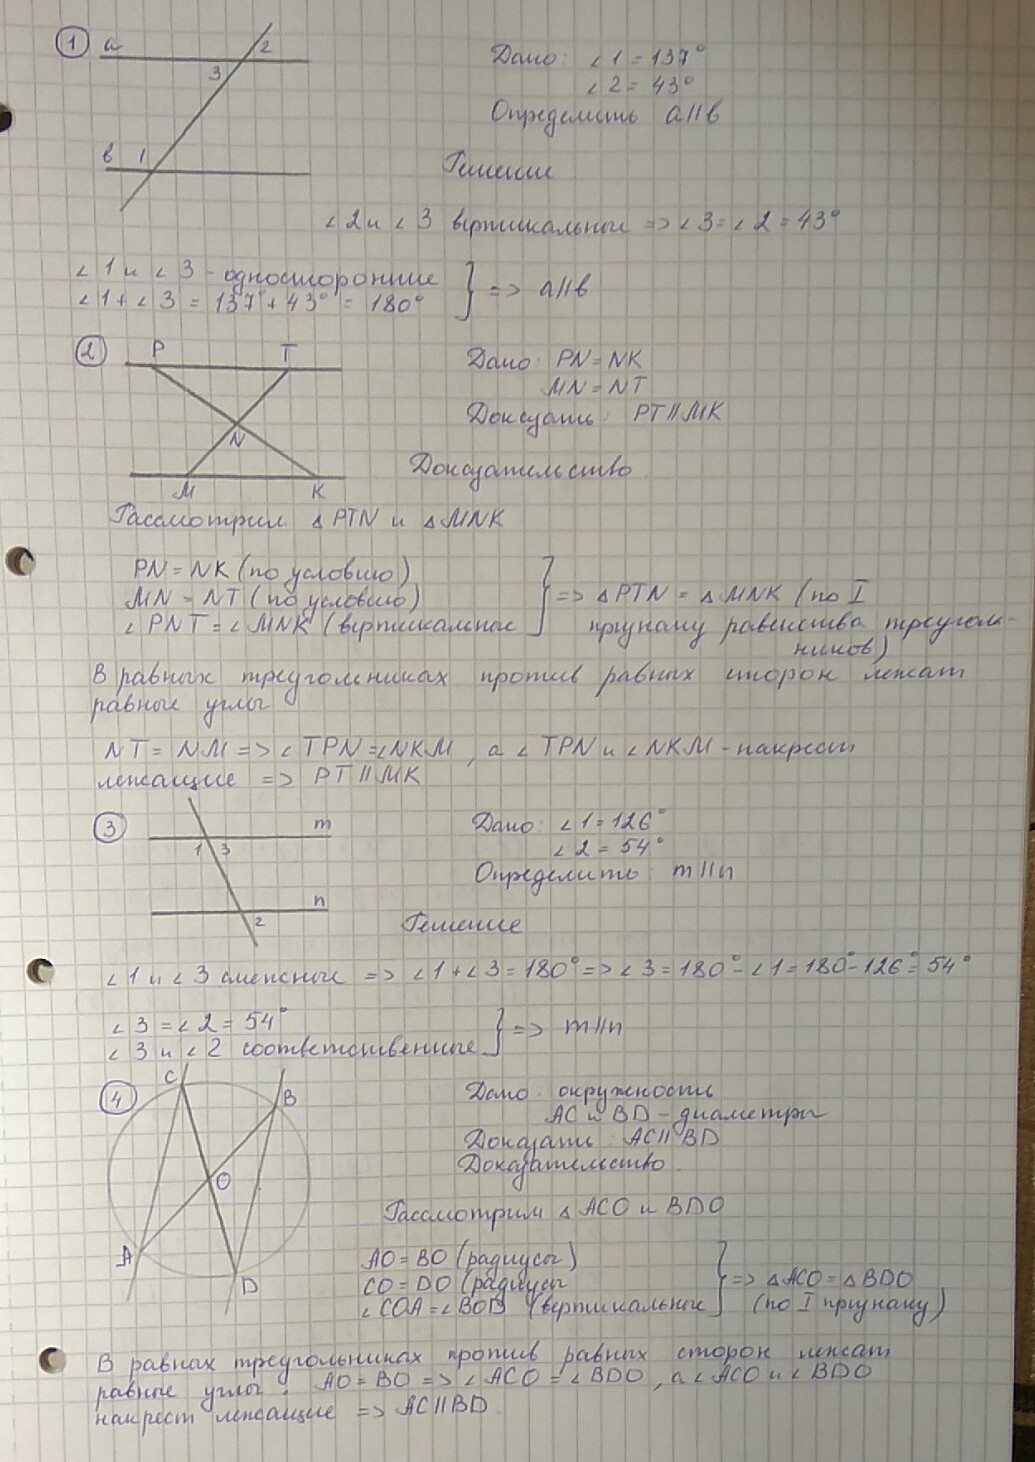 1 a 2 Дано: ∠1 = 137°
3 ∠2 = 43°
Определить a∥b
в 1 Решение
∠2 и ∠3 вертикальные => ∠3 = ∠2 = 43°
∠1 и ∠3 - односторонние
∠1 + ∠3 = 137° + 43° = 180° } => a∥b
2 P T Дано: PN = NK
MN = NT
Доказать: PT∥MK
N
Доказательство.
M K
Рассмотрим △PTN и △MNK
PN = NK (по условию)
MN = NT (по условию) } => △PTN = △MNK (по I
∠PNT = ∠MNK (вертикальные признаку равенства треуголь-
ников)
В равных треугольниках против равных сторон лежат
равные углы
NT = NM => ∠TPN = ∠NKM, а ∠TPN и ∠NKM - накрест
лежащие => PT∥MK
3 m Дано: ∠1 = 126°
1 3 ∠2 = 54°
Определить m∥n
n
2 Решение
∠1 и ∠3 смежные => ∠1 + ∠3 = 180° => ∠3 = 180° - ∠1 = 180° - 126° = 54°
∠3 = ∠2 = 54°
∠3 и ∠2 соответственные } => m∥n
4 C B Дано: окружность
AC и BD - диаметры
Доказать: AC∥BD
Доказательство.
O
Рассмотрим △ACO и BDO
A D
AO = BO (радиусы)
CO = DO (радиусы } => △ACO = △BDO
∠COA = ∠BOD (вертикальные (по I признаку)
В равнах треугольниках против равных сторон лежат
равные углы. AO = BO => ∠ACO = ∠BDO, а ∠ACO и ∠BDO
накрест лежащие => AC∥BD.